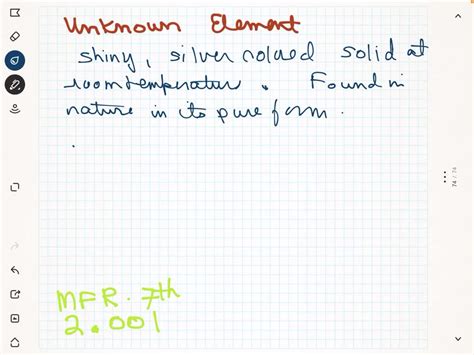 Unknown Element
shiny, silver colored solid at
room temperatur. Found in
nature in its pure form.
MFR. 7th
2.001
74 / 74